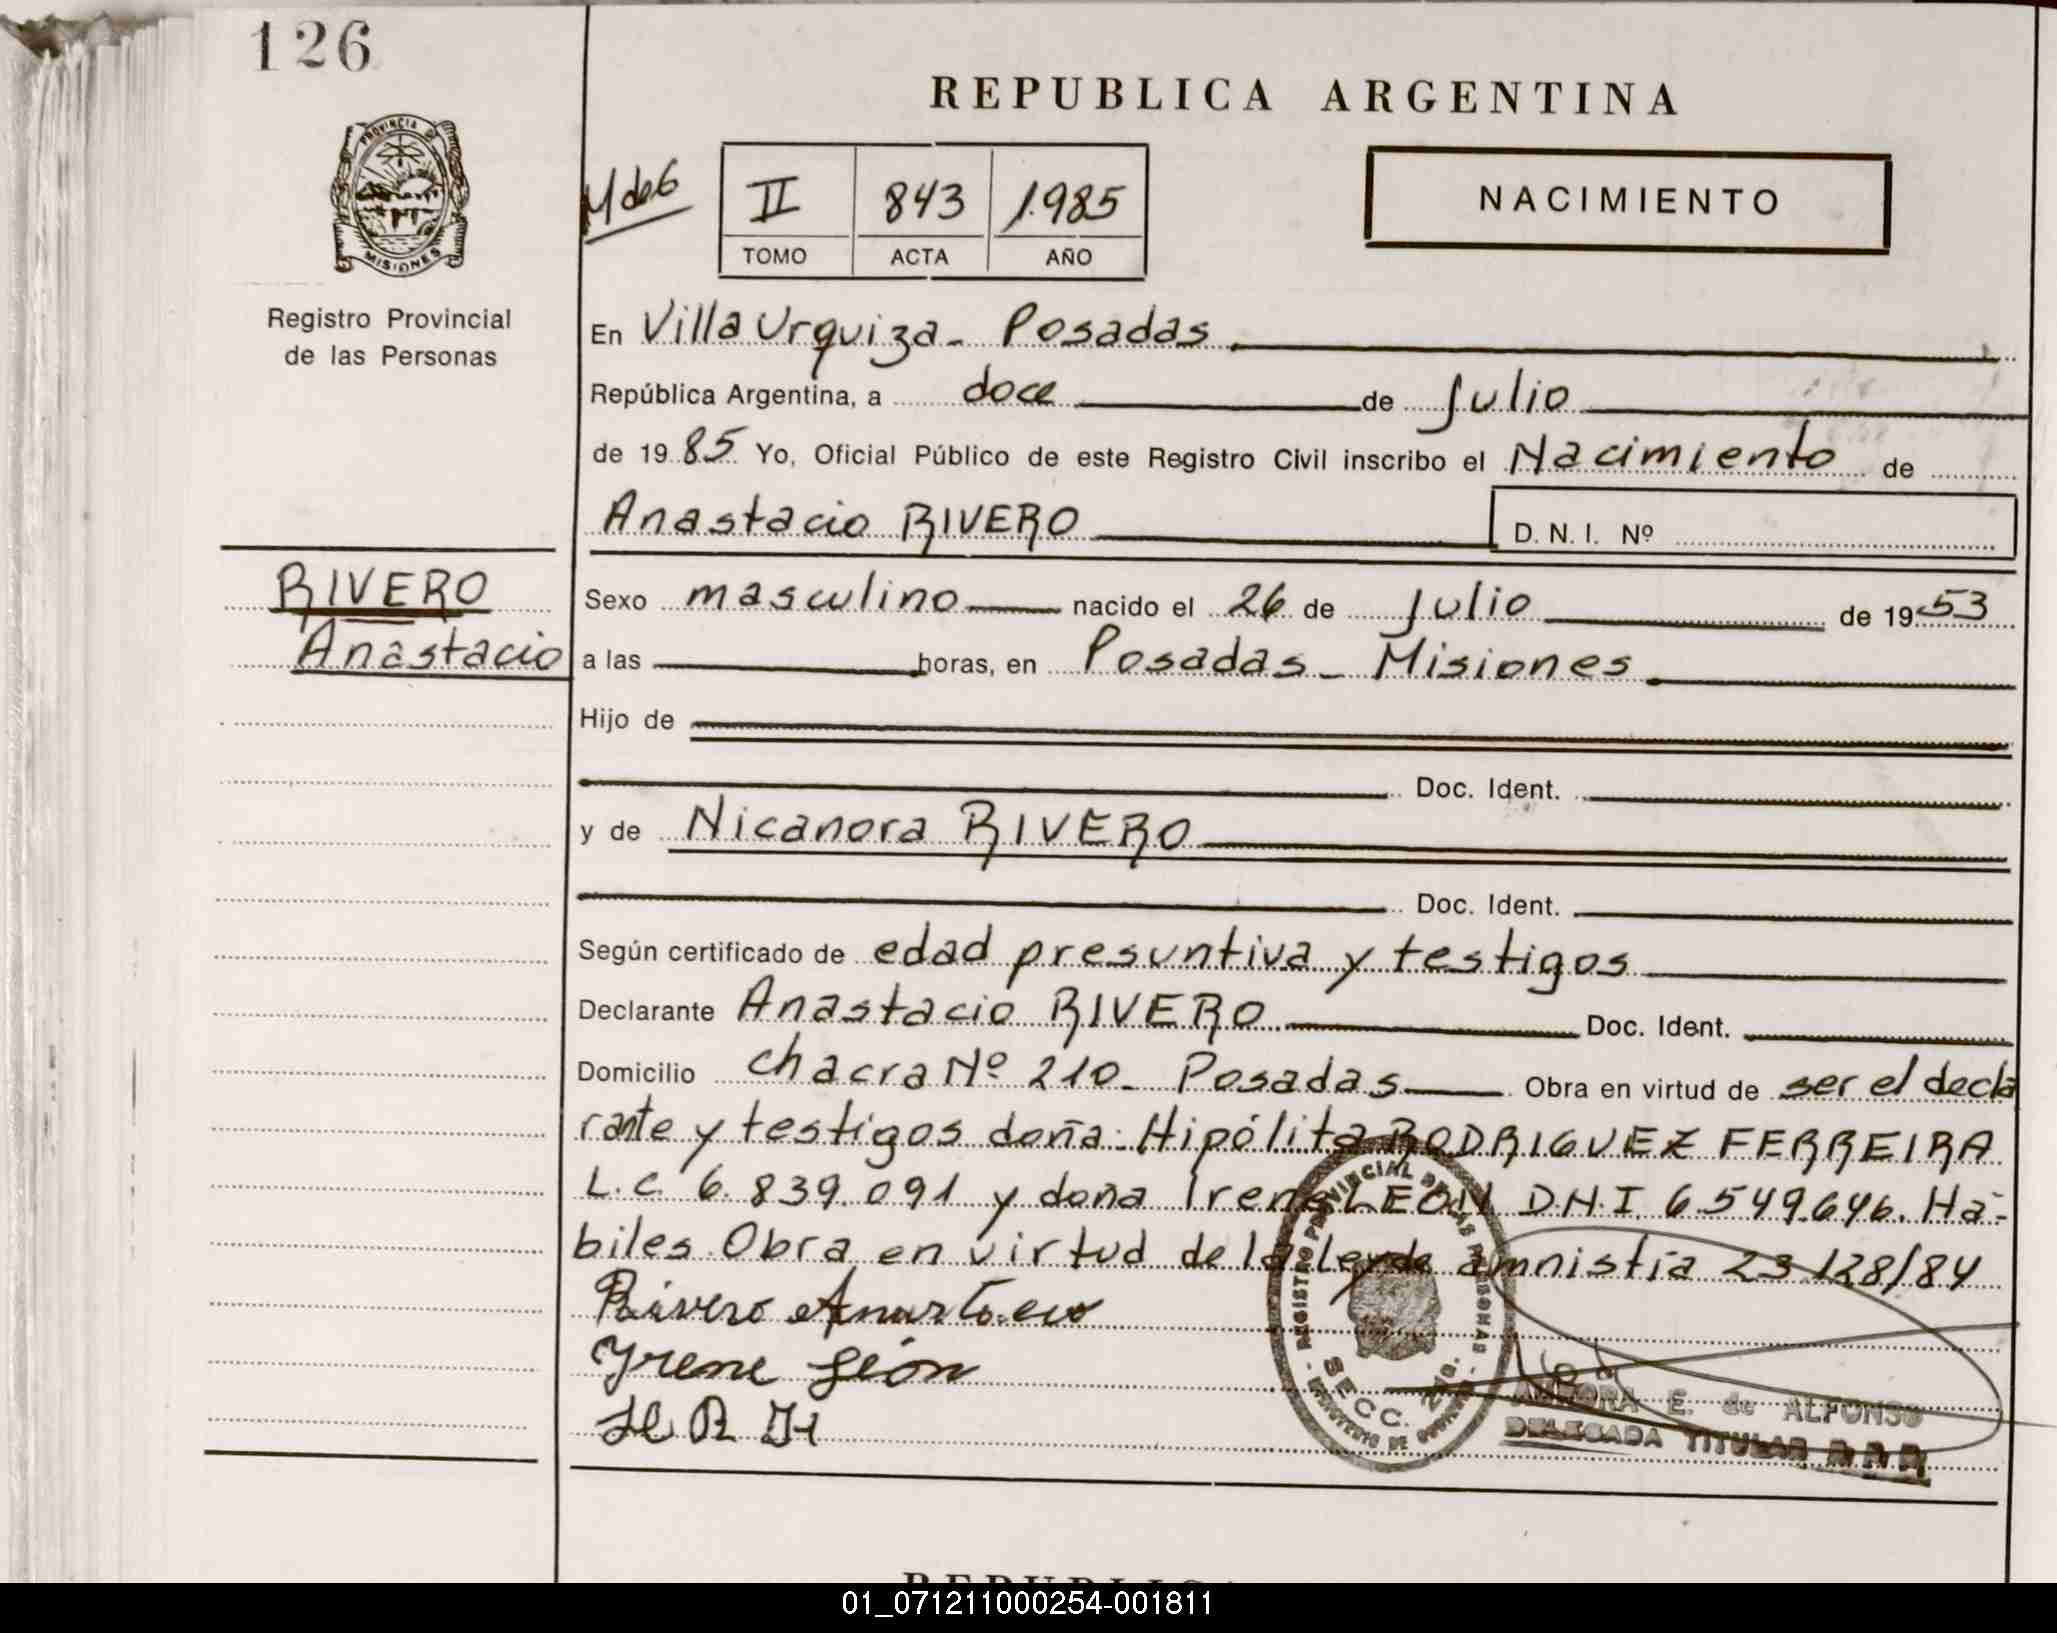 126
REPUBLICA ARGENTINA
PROVINCIA DE
MISIONES
Registro Provincial
de las Personas
M de 6
II 843 1.985
TOMO ACTA AÑO
NACIMIENTO
En Villa Urquiza - Posadas
República Argentina, a doce de Julio
de 1985 Yo, Oficial Público de este Registro Civil inscribo el Nacimiento de
Anastacio RIVERO D. N. I. Nº
RIVERO
Anastacio
Sexo masculino nacido el 26 de Julio de 1953
a las horas, en Posadas - Misiones
Hijo de
Doc. Ident.
y de Nicanora RIVERO
Doc. Ident.
Según certificado de edad presuntiva y testigos
Declarante Anastacio RIVERO Doc. Ident.
Domicilio chacra Nº 210 - Posadas Obra en virtud de ser el decla
rante y testigos doña: Hipólita RODRIGUEZ FERREIRA
L.C 6.839.091 y doña Irene LEON D.N.I. 6.549.646. Há-
biles. Obra en virtud de la ley de amnistía 23.128/84
Rivero Anastacio
Irene León
H R F
REGISTRO PROVINCIAL DE LAS PERSONAS
SECC.
MINISTERIO DE GOBIERNO
AURORA E. de ALFONSO
DELEGADA TITULAR R P P
REPUBLICA
01_071211000254-001811